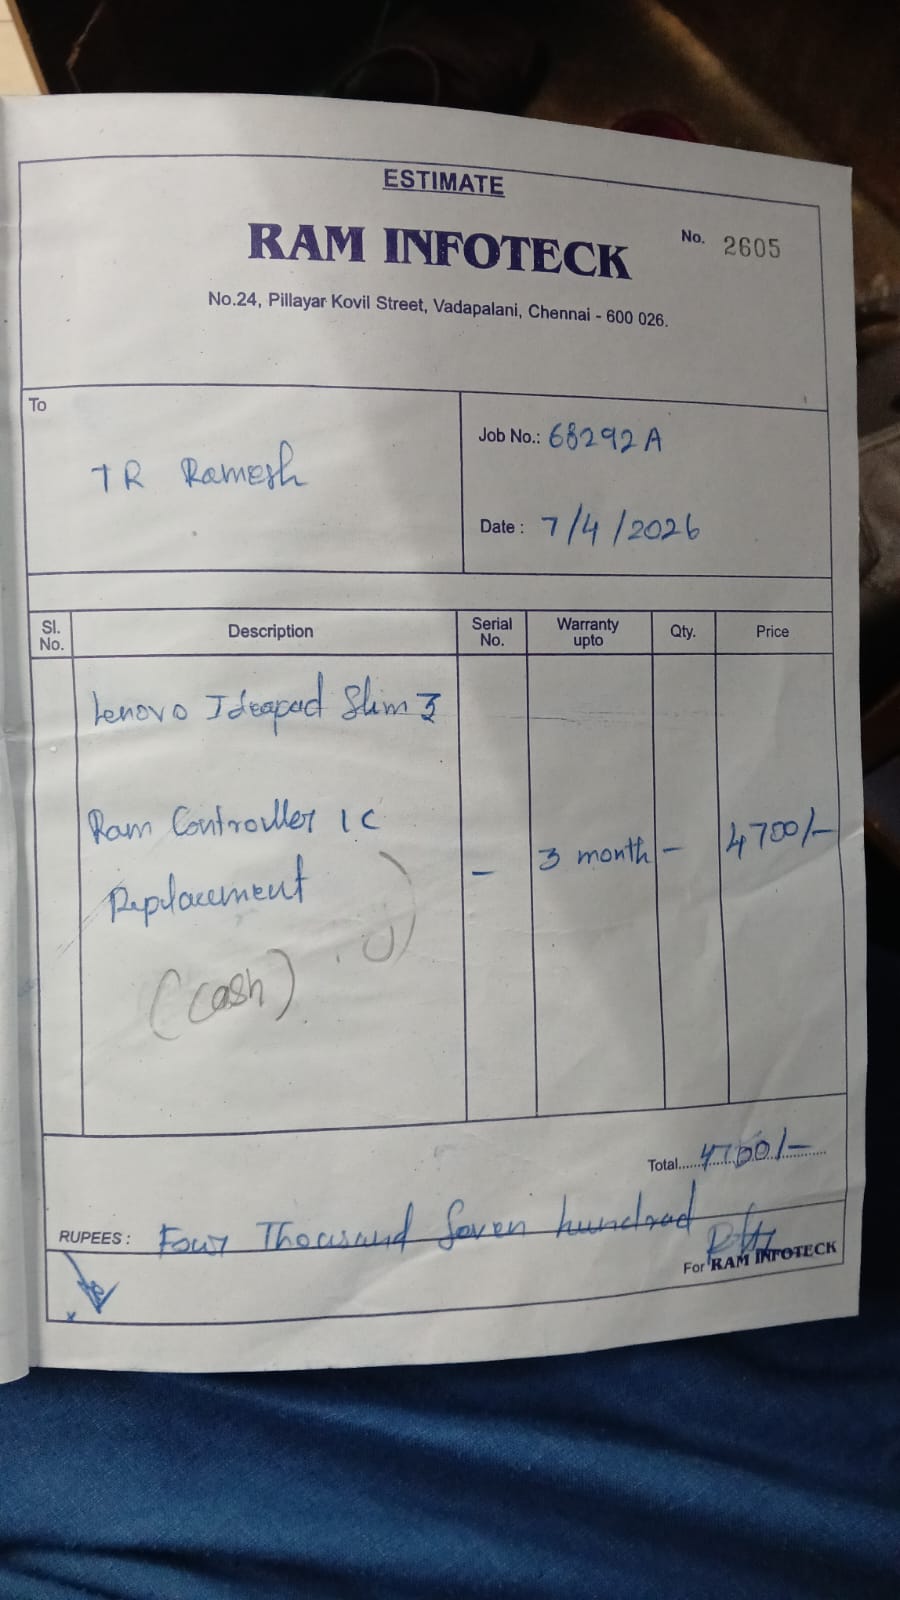 ESTIMATE
RAM INFOTECK
No. 2605
No.24, Pillayar Kovil Street, Vadapalani, Chennai - 600 026.
To
TR Ramesh
Job No.: 68292A
Date : 7/4/2026
Sl. No. Description Serial No. Warranty upto Qty. Price
Lenovo Ideapad Slim 3
Ram Controller IC
Replacement - 3 month - 4700/-
(Cash)
Total......4700/-
RUPEES : Four Thousand Seven hundrad
For RAM INFOTECK